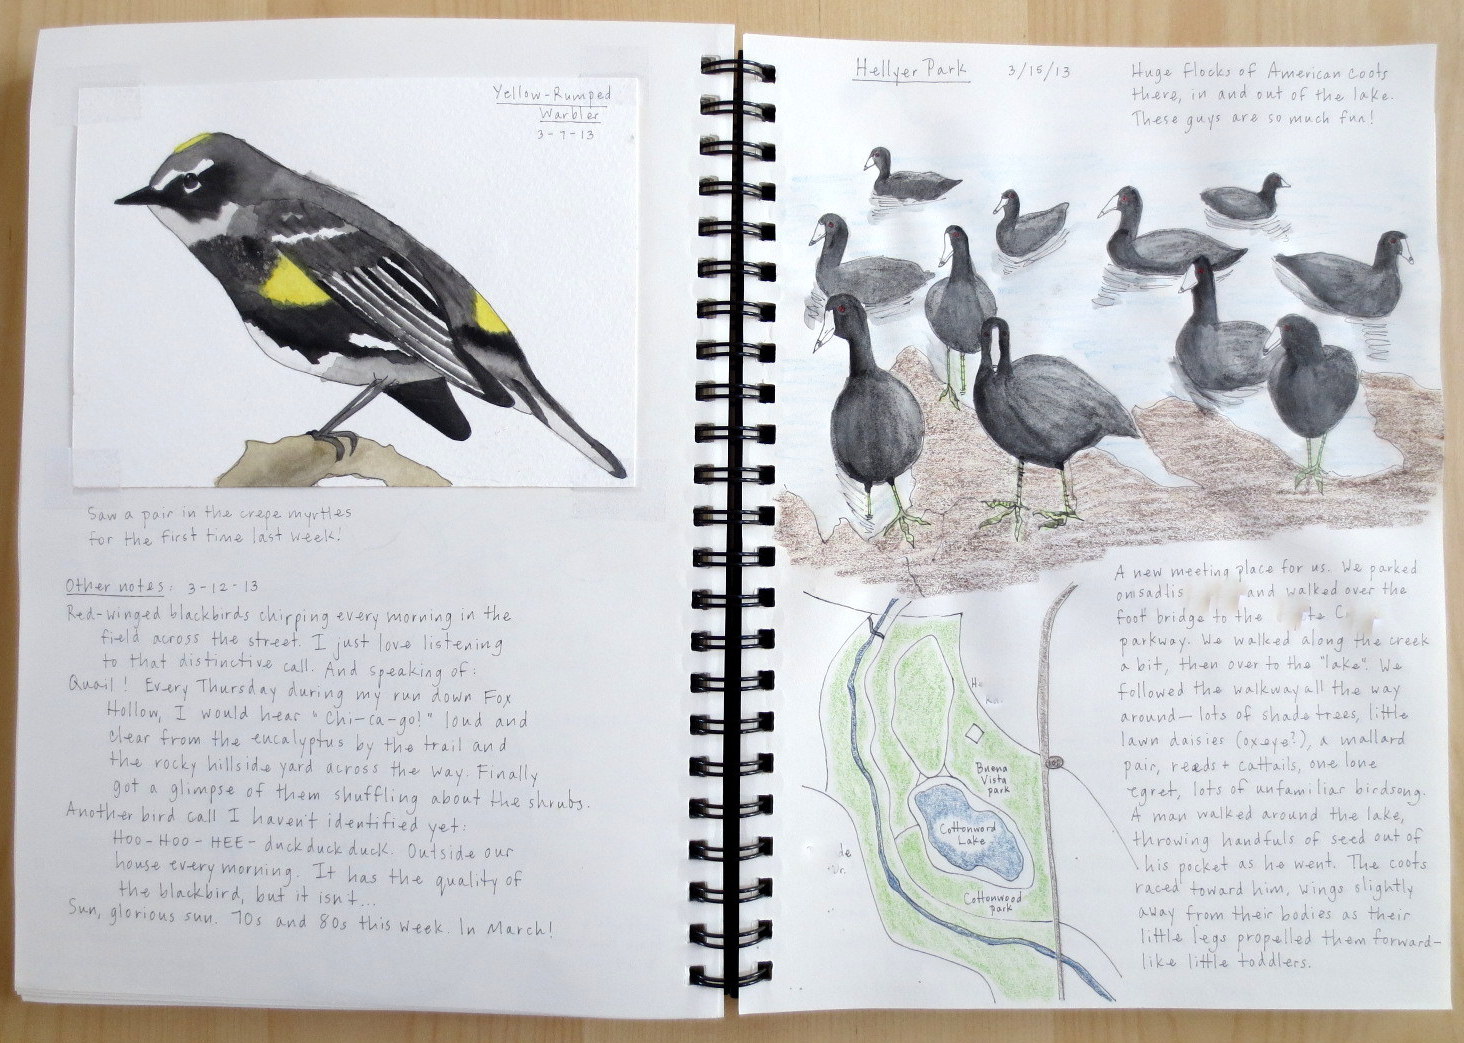 Yellow-Rumped
Warbler
3-7-13
Saw a pair in the crepe myrtles
for the first time last week!
Other notes: 3-12-13
Red-winged blackbirds chirping every morning in the
field across the street. I just love listening
to that distinctive call. And speaking of:
Quail! Every Thursday during my run down Fox
Hollow, I would hear "Chi-ca-go!" loud and
clear from the eucalyptus by the trail and
the rocky hillside yard across the way. Finally
got a glimpse of them shuffling about the shrubs.
Another bird call I haven't identified yet:
HOO-HOO-HEE-duckduckduck. Outside our
house every morning. It has the quality of
the blackbird, but it isn't...
Sun, glorious sun. 70s and 80s this week. In March!
Hellyer Park 3/15/13
Huge flocks of American coots
there, in and out of the lake.
These guys are so much fun!
A new meeting place for us. We parked
and walked over the
foot bridge to the
parkway. We walked along the creek
a bit, then over to the "lake". We
followed the walkway all the way
around—lots of shade trees, little
lawn daisies (oxeye?), a mallard
pair, reeds + cattails, one lone
egret, lots of unfamiliar birdsong.
A man walked around the lake,
throwing handfuls of seed out of
his pocket as he went. The coots
raced toward him, wings slightly
away from their bodies as their
little legs propelled them forward—
like little toddlers.
Buena
Vista
park
Cottonwood
Lake
Cottonwood
park